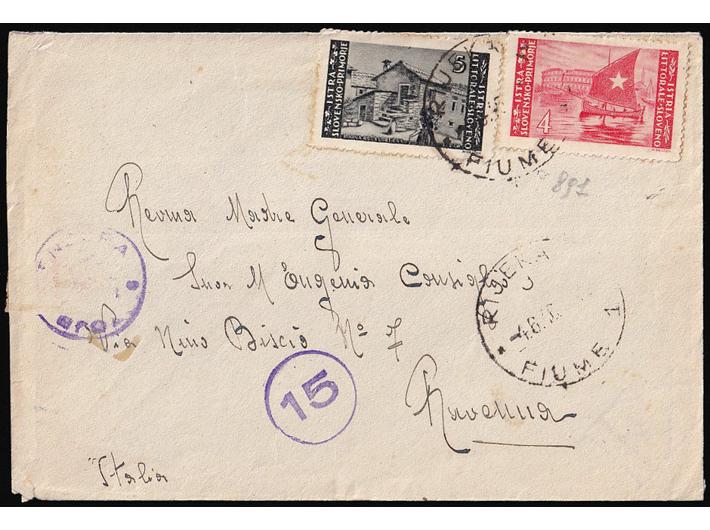 ISTRA
SLOVENSKO-PRIMORJE
5
ISTRIA
LITTORALE-SLOVENO
ISTRA
SLOVENSKO-PRIMORJE
4
ISTRIA
LITTORALE-SLOVENO
FIUME
891
Revma Madre Generale
Suor M Eugenia
Via Nino Biscio No 7
Ravenna
Italia
15
FIUME 1